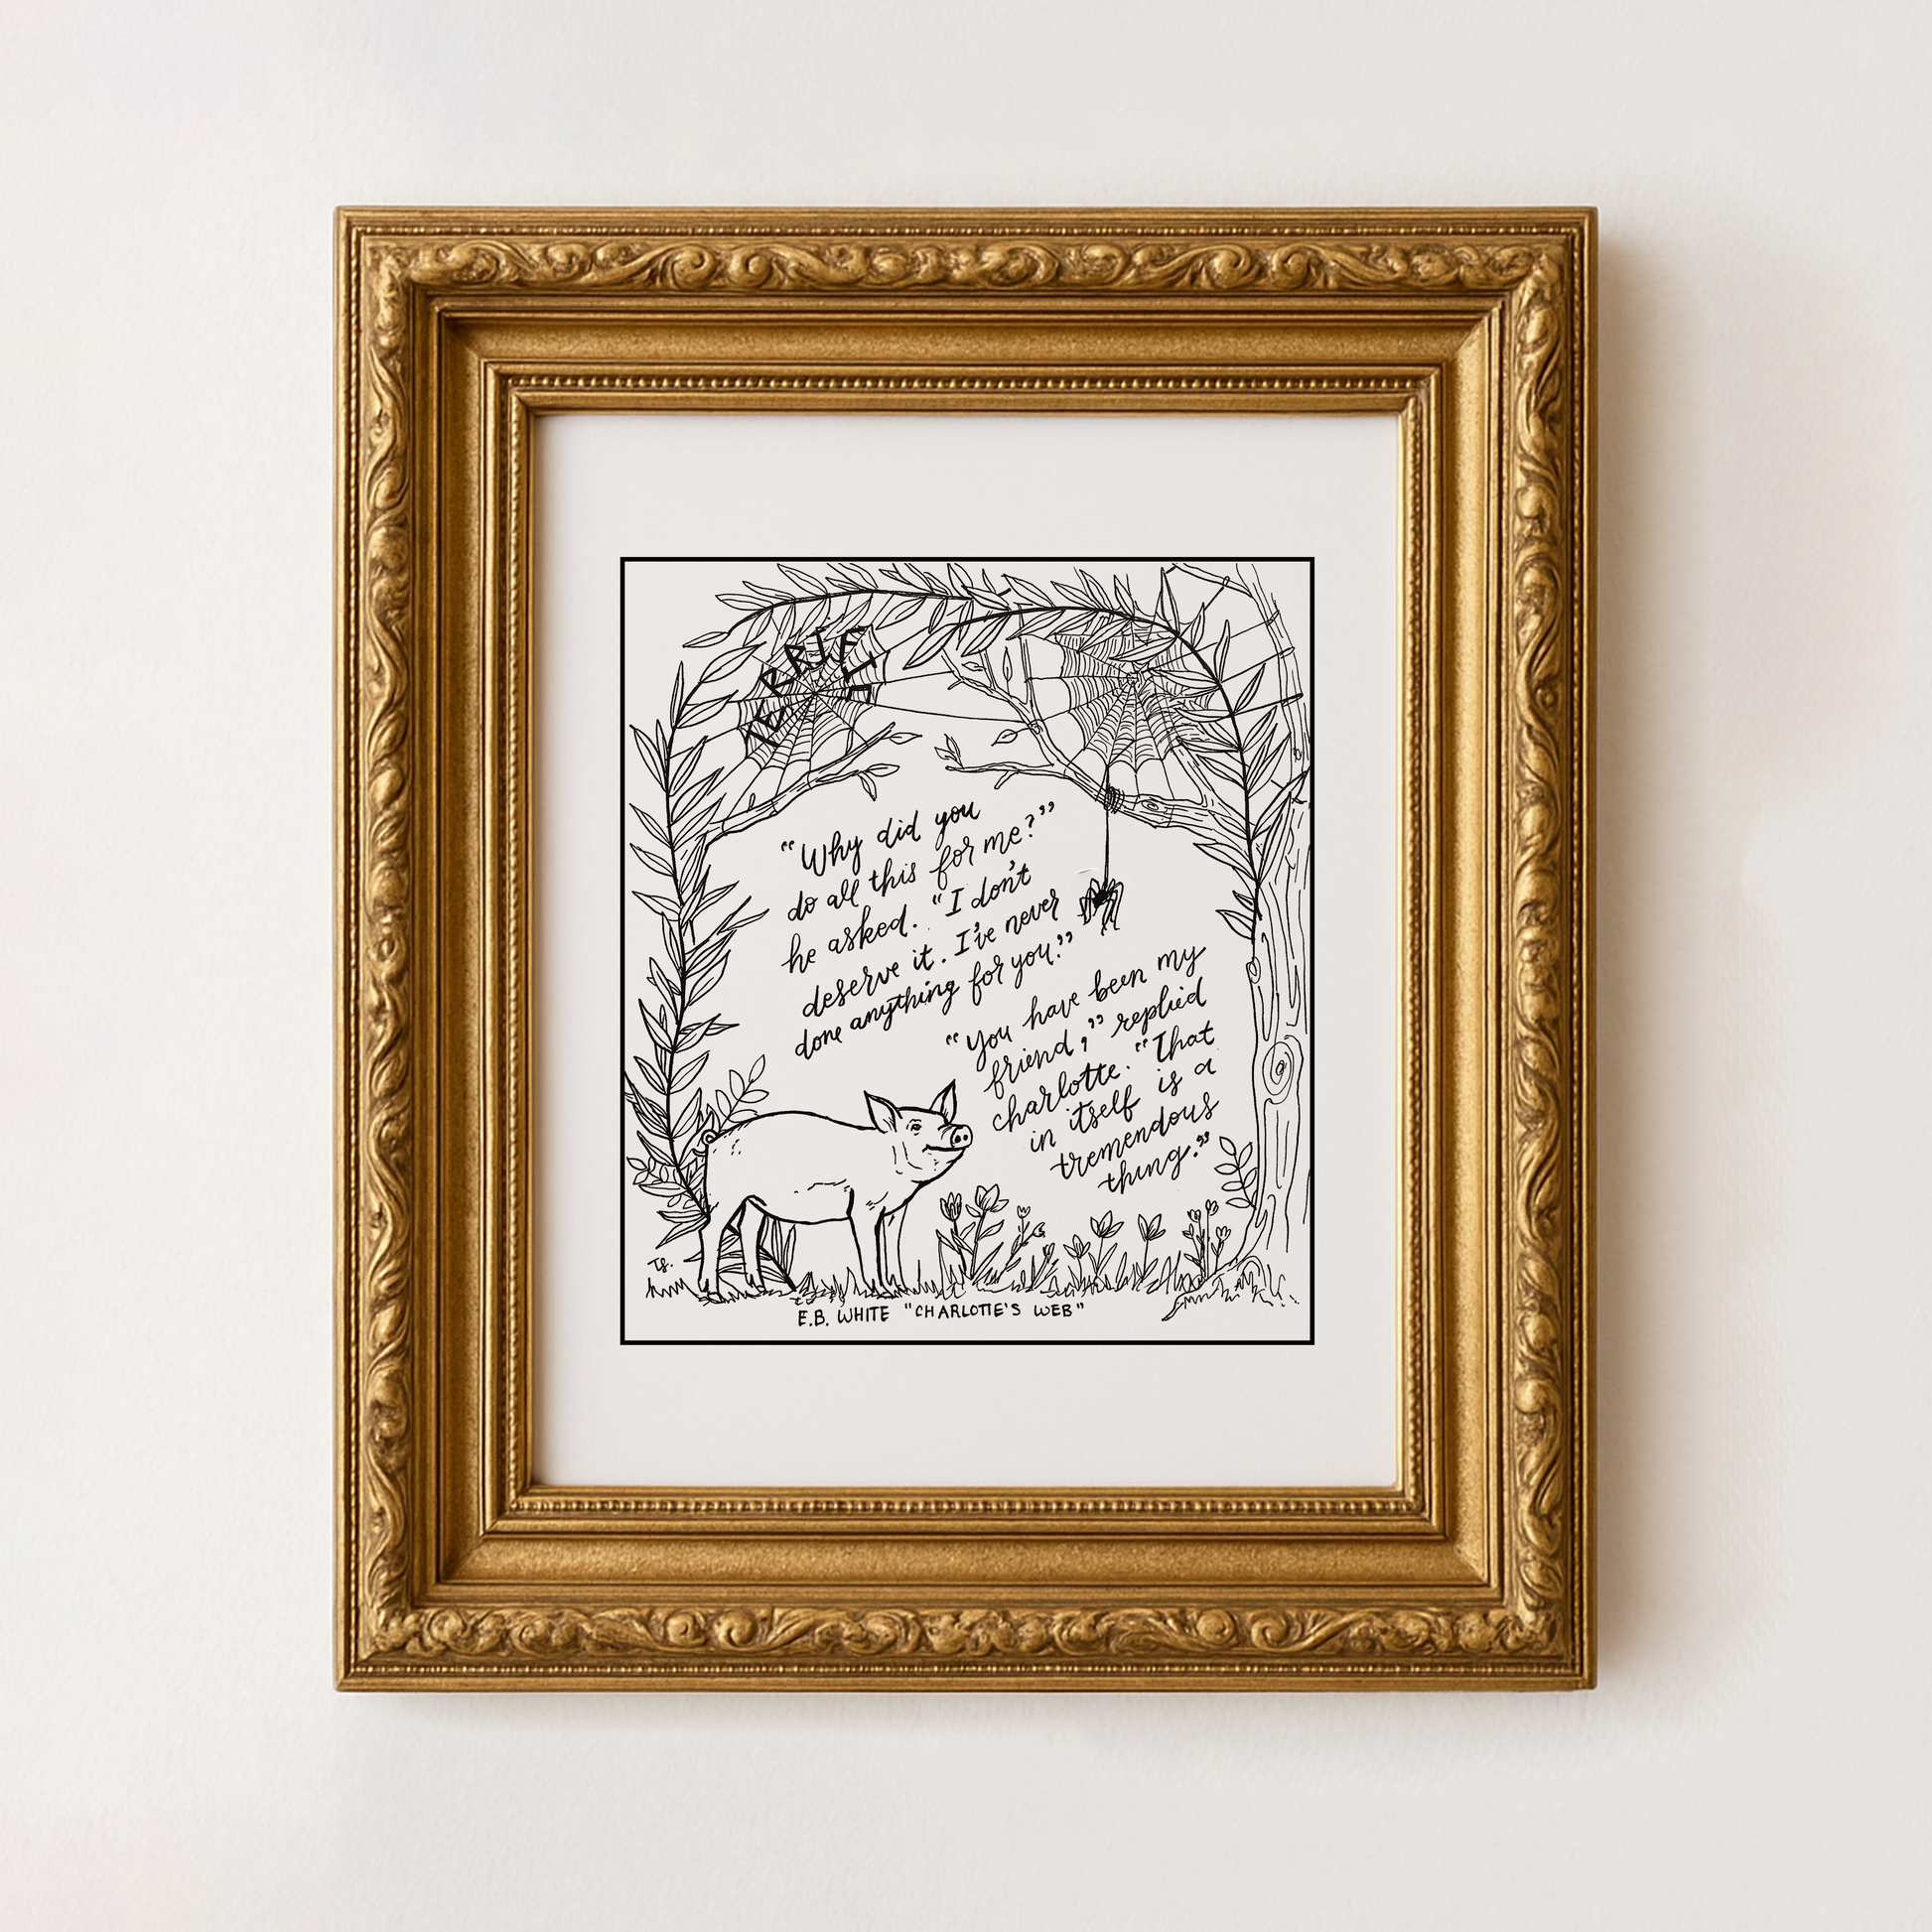 TERRIFIC
“Why did you
do all this for me?”
he asked. “I don't
deserve it. I've never
done anything for you.”
“You have been my
friend,” replied
charlotte. “That
in itself is a
tremendous
thing.”
TS.
E.B. WHITE "CHARLOTTE'S WEB"